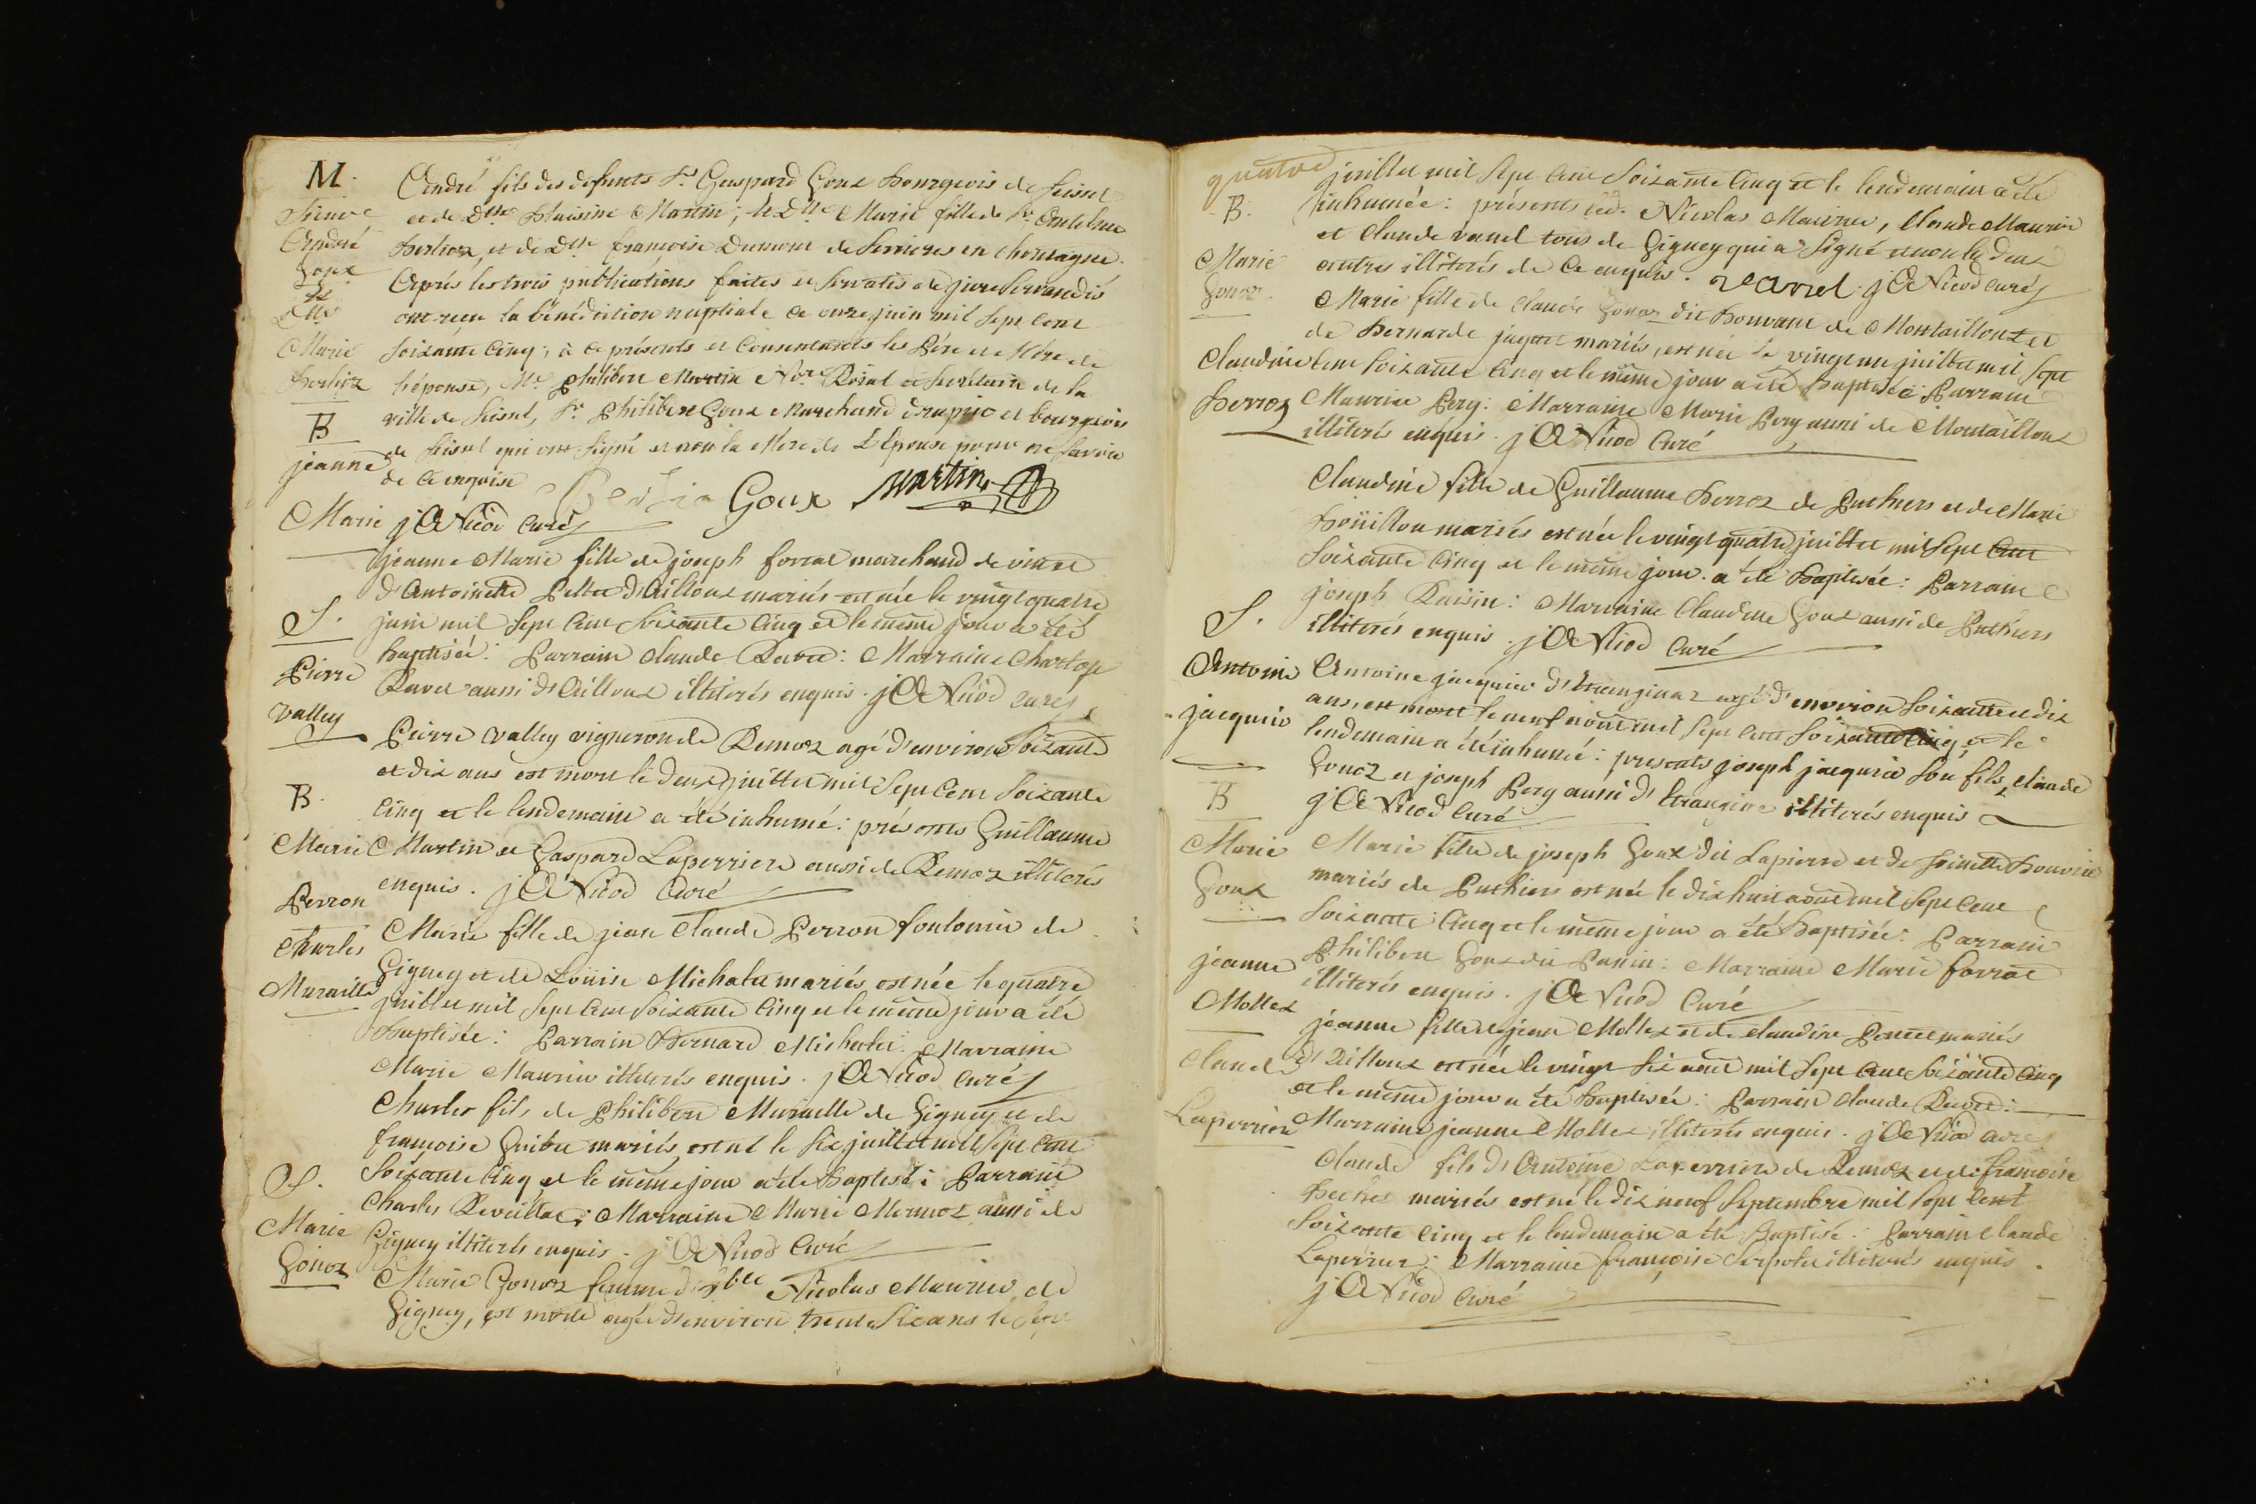 M.
André fils des defunts Sr. Gaspard Goux Bourgeois de Seissel
et de Dlle Blaisine Martin; et Dlle Marie fille de Sr. Antelme
Berlioz, et de Dlle françoise Dumont de Serrieres en Chautagne.
Après les trois publications faites et Servatis de jure Servandis
ont reçu la bénédiction nuptiale Ce onze juin mil Sept Cent
Soixante Cinq; à Ce présents et Consentants les Père et Mère de
l'épouse, Me. Philibert Martin Nore. Roïal et Secrétaire de la
ville de Seissel, Sr. Philibert Goux Marchand drapier et bourgeois
de Seissel qui ont Signé et non la Mère de L'Epouse pour ne Savoir
de Ce enquise
Goux Martin
j Nicod Curé
Sieur
André
Goux
et
Dlle
Marie
Berlioz
B
jeanne
Marie
jeanne Marie fille de joseph forrat marchand de vin et
d'Antoinette Pellet d'Ailloux mariés est née le vingt quatre
juin mil Sept Cent Soixante Cinq et le même jour a été
baptisée: Parrain Claude Ravet: Marraine Charlotte
Ravet aussi d'Ailloux illiterés enquis. j Nicod Curé
S.
Pierre
Valley
Pierre Valley vigneron de Remoz agé d'environ Soixante
et dix ans est mort le deux juillet mil Sept Cent Soixante
Cinq et le lendemain a été inhumé: présents Guillaume
Martin et Gaspard Laperriere aussi de Remoz illiterés
enquis. j Nicod Curé
B.
Marie
Perron
Marie fille de jean Claude Perron de
Gigney et de Loüise Michalet mariés, est née le quatre
juillet mil Sept Cent Soixante Cinq et le même jour a été
baptisée: Parrain Bernard Michalet: Marraine
Marie Maurier illiterés enquis. j Nicod Curé
Charles
Muraille
Charles fils de Philibert Muraille de Gigney et de
françoise mariés, est né le Six juillet mil Sept Cent
Soixante Cinq et le même jour a été baptisé: Parrain
Charles: Marraine Marie Mermoz aussi de
Gigney illiterés enquis. j Nicod Curé
S.
Marie
Gonoz
Marie Gonoz femme d'hble Nicolas Maurier de
Gigney, est morte agée d'environ trente Six ans le
quatre juillet mil Sept Cent Soixante Cinq et le lendemain a été
inhumée: présents led. Nicolas Maurier, Claude Maurier
et Claude vanel tous de Gigney qui a Signé et non les deux
autres illiterés de Ce enquis. Vanel j Nicod Curé
B.
Marie
Gonoz
Marie fille de Claude Gonoz dit Bouvant de Montailloux et
de Bernarde jaquet mariés, est née le vingt un juillet mil Sept
Cent Soixante Cinq et le même jour a été baptisée: Parrain
Maurice Pery: Marraine Marie Pery aussi de Montailloux
illiterés enquis. j Nicod Curé
Claudine
Berroz
Claudine fille de Guillaume Berroz de Puthiers et de Marie
Boüillon mariés est née le vingt quatre juillet mil Sept Cent
Soixante Cinq et le même jour a été baptisée: Parrain
joseph Raisin: Marraine Claudine Goux aussi de Puthiers
illiterés enquis. j Nicod Curé
S.
Antoine
jacquier
Antoine jacquier agé d'environ Soixante et dix
ans, est mort le neuf aoûst mil Sept Cent Soixante Cinq et le
lendemain a été inhumé: presents joseph jacquier Son fils, Claude
Gonoz et joseph Pery aussi illiterés enquis
j Nicod Curé
B
Marie
Goux
Marie fille de joseph Goux dit Lapierre et de Bouvier
mariés de Puthiers est née le dix huit aoûst mil Sept Cent
Soixante Cinq et le même jour a été baptisée: Parrain
Philibert Goux dit: Marraine Marie forrat
illiterés enquis. j Nicod Curé
jeanne
Mollex
jeanne fille de jean Mollex et de Claudine mariés
d'Ailloux est née le vingt Six aoûst mil Sept Cent Soixante Cinq
et le même jour a été baptisée: Parrain Claude Ravet:
Marraine jeanne Mollex illiterés enquis. j Nicod Curé
Claude
Laperriere
Claude fils d'Antoine Laperriere de Remoz et de françoise
mariés est né le dix neuf Septembre mil Sept Cent
Soixante Cinq et le lendemain a été baptisé: Parrain Claude
Laperriere: Marraine françoise illiterés enquis.
j Nicod Curé